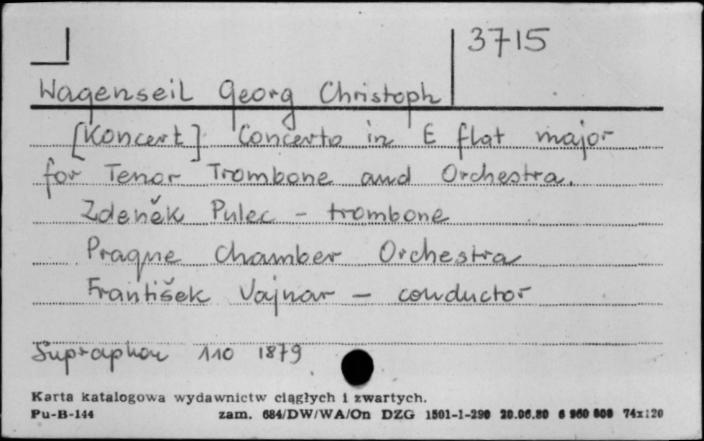 3715
Wagenseil Georg Christoph
[Koncert] Concerto in E flat major
for Tenor Trombone and Orchestra.
Zdeněk Pulec - trombone
Prague Chamber Orchestra
František Vajnar - conductor
Supraphon 110 1879
Karta katalogowa wydawnictw ciągłych i zwartych.
Pu-B-144 zam. 684/DW/WA/On DZG 1501-1-290 20.06.80 74x120